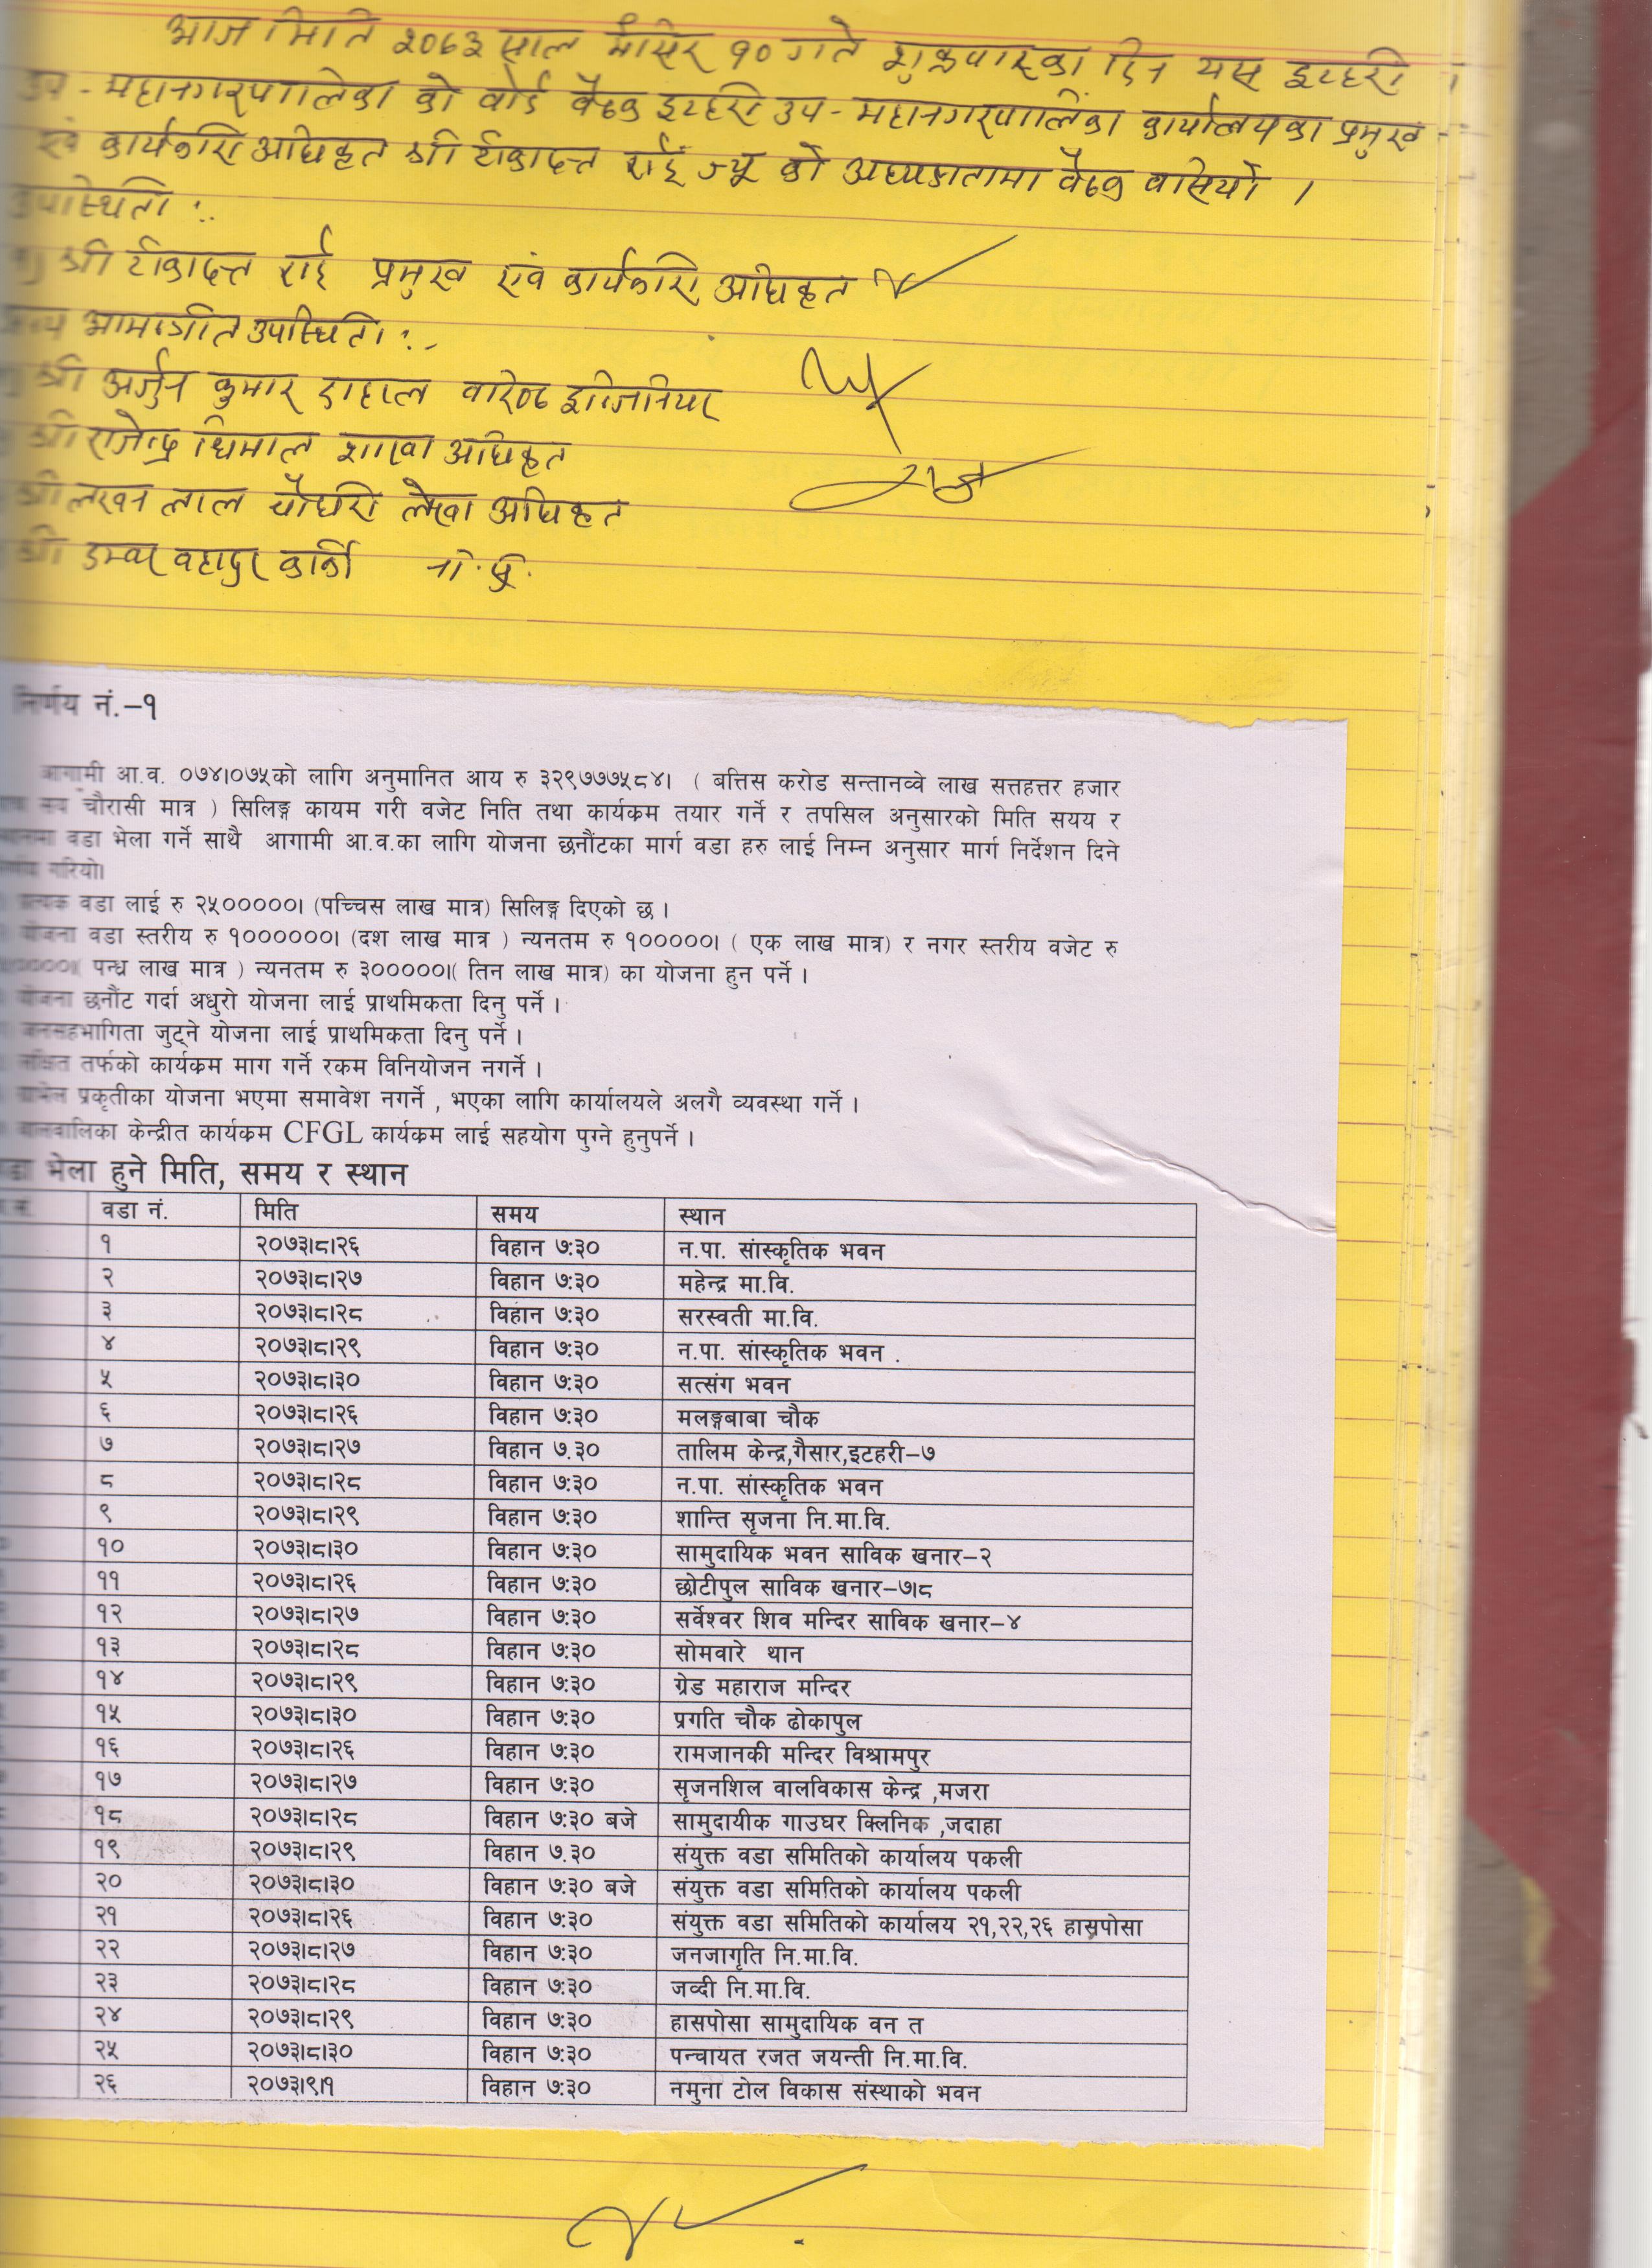 आज मिति २०७३ साल मंसिर १० गते शुक्रवारका दिन यस इटहरी
उप-महानगरपालिका को बोर्ड बैठक इटहरी उप-महानगरपालिका कार्यालयका प्रमुख
एवं कार्यकारी अधिकृत श्री टीकादत्त राई ज्यू को अध्यक्षतामा बैठक बसियो ।
उपस्थिती :-
श्री टीकादत्त राई प्रमुख एवं कार्यकारी अधिकृत
आमन्त्रीत उपस्थिती :-
श्री अर्जुन कुमार दाहाल वरिष्ठ इन्जिनियर
श्री राजेन्द्र धिमाल शाखा अधिकृत
श्री लखन लाल चौधरी लेखा अधिकृत
श्री डम्बर बहादुर कार्की ना.सु.
निर्णय नं.–१
आगामी आ.व. ०७४।०७५को लागि अनुमानित आय रु ३२९७७७५८४। ( बत्तिस करोड सन्तानव्वे लाख सत्तहत्तर हजार
सय चौरासी मात्र ) सिलिङ्ग कायम गरी वजेट निति तथा कार्यकम तयार गर्ने र तपसिल अनुसारको मिति सयय र
वडा भेला गर्ने साथै आगामी आ.व.का लागि योजना छनौंटका मार्ग वडा हरु लाई निम्न अनुसार मार्ग निर्देशन दिने
गरियो।
वडा लाई रु २५०००००। (पच्चिस लाख मात्र) सिलिङ्ग दिएको छ ।
योजना वडा स्तरीय रु १००००००। (दश लाख मात्र ) न्यनतम रु १०००००। ( एक लाख मात्र) र नगर स्तरीय वजेट रु
पन्ध्र लाख मात्र ) न्यनतम रु ३०००००।( तिन लाख मात्र) का योजना हुन पर्ने ।
योजना छनौंट गर्दा अधुरो योजना लाई प्राथमिकता दिनु पर्ने ।
जनसहभागिता जुट्ने योजना लाई प्राथमिकता दिनु पर्ने ।
लक्षित तर्फको कार्यकम माग गर्ने रकम विनियोजन नगर्ने ।
प्रकृतीका योजना भएमा समावेश नगर्ने , भएका लागि कार्यालयले अलगै व्यवस्था गर्ने ।
वालवालिका केन्द्रीत कार्यकम CFGL कार्यकम लाई सहयोग पुग्ने हुनुपर्ने ।
वडा भेला हुने मिति, समय र स्थान
वडा नं. मिति समय स्थान
१ २०७३।८।२६ विहान ७:३० न.पा. सांस्कृतिक भवन
२ २०७३।८।२७ विहान ७:३० महेन्द्र मा.वि.
३ २०७३।८।२८ विहान ७:३० सरस्वती मा.वि.
४ २०७३।८।२९ विहान ७:३० न.पा. सांस्कृतिक भवन .
५ २०७३।८।३० विहान ७:३० सत्संग भवन
६ २०७३।८।२६ विहान ७:३० मलङ्गबाबा चौक
७ २०७३।८।२७ विहान ७.३० तालिम केन्द्र,गैसार,इटहरी–७
८ २०७३।८।२८ विहान ७:३० न.पा. सांस्कृतिक भवन
९ २०७३।८।२९ विहान ७:३० शान्ति सृजना नि.मा.वि.
१० २०७३।८।३० विहान ७:३० सामुदायिक भवन साविक खनार–२
११ २०७३।८।२६ विहान ७:३० छोटीपुल साविक खनार–७।८
१२ २०७३।८।२७ विहान ७:३० सर्वेश्वर शिव मन्दिर साविक खनार–४
१३ २०७३।८।२८ विहान ७:३० सोमवारे थान
१४ २०७३।८।२९ विहान ७:३० ग्रेड महाराज मन्दिर
१५ २०७३।८।३० विहान ७:३० प्रगति चौक ढोकापुल
१६ २०७३।८।२६ विहान ७:३० रामजानकी मन्दिर विश्रामपुर
१७ २०७३।८।२७ विहान ७:३० सृजनशिल वालविकास केन्द्र ,मजरा
१८ २०७३।८।२८ विहान ७:३० बजे सामुदायीक गाउघर क्लिनिक ,जदाहा
१९ २०७३।८।२९ विहान ७.३० संयुक्त वडा समितिको कार्यालय पकली
२० २०७३।८।३० विहान ७:३० बजे संयुक्त वडा समितिको कार्यालय पकली
२१ २०७३।८।२६ विहान ७:३० संयुक्त वडा समितिको कार्यालय २१,२२,२६ हासपोसा
२२ २०७३।८।२७ विहान ७:३० जनजागृति नि.मा.वि.
२३ २०७३।८।२८ विहान ७:३० जव्दी नि.मा.वि.
२४ २०७३।८।२९ विहान ७:३० हासपोसा सामुदायिक वन त
२५ २०७३।८।३० विहान ७:३० पन्चायत रजत जयन्ती नि.मा.वि.
२६ २०७३।९।१ विहान ७:३० नमुना टोल विकास संस्थाको भवन